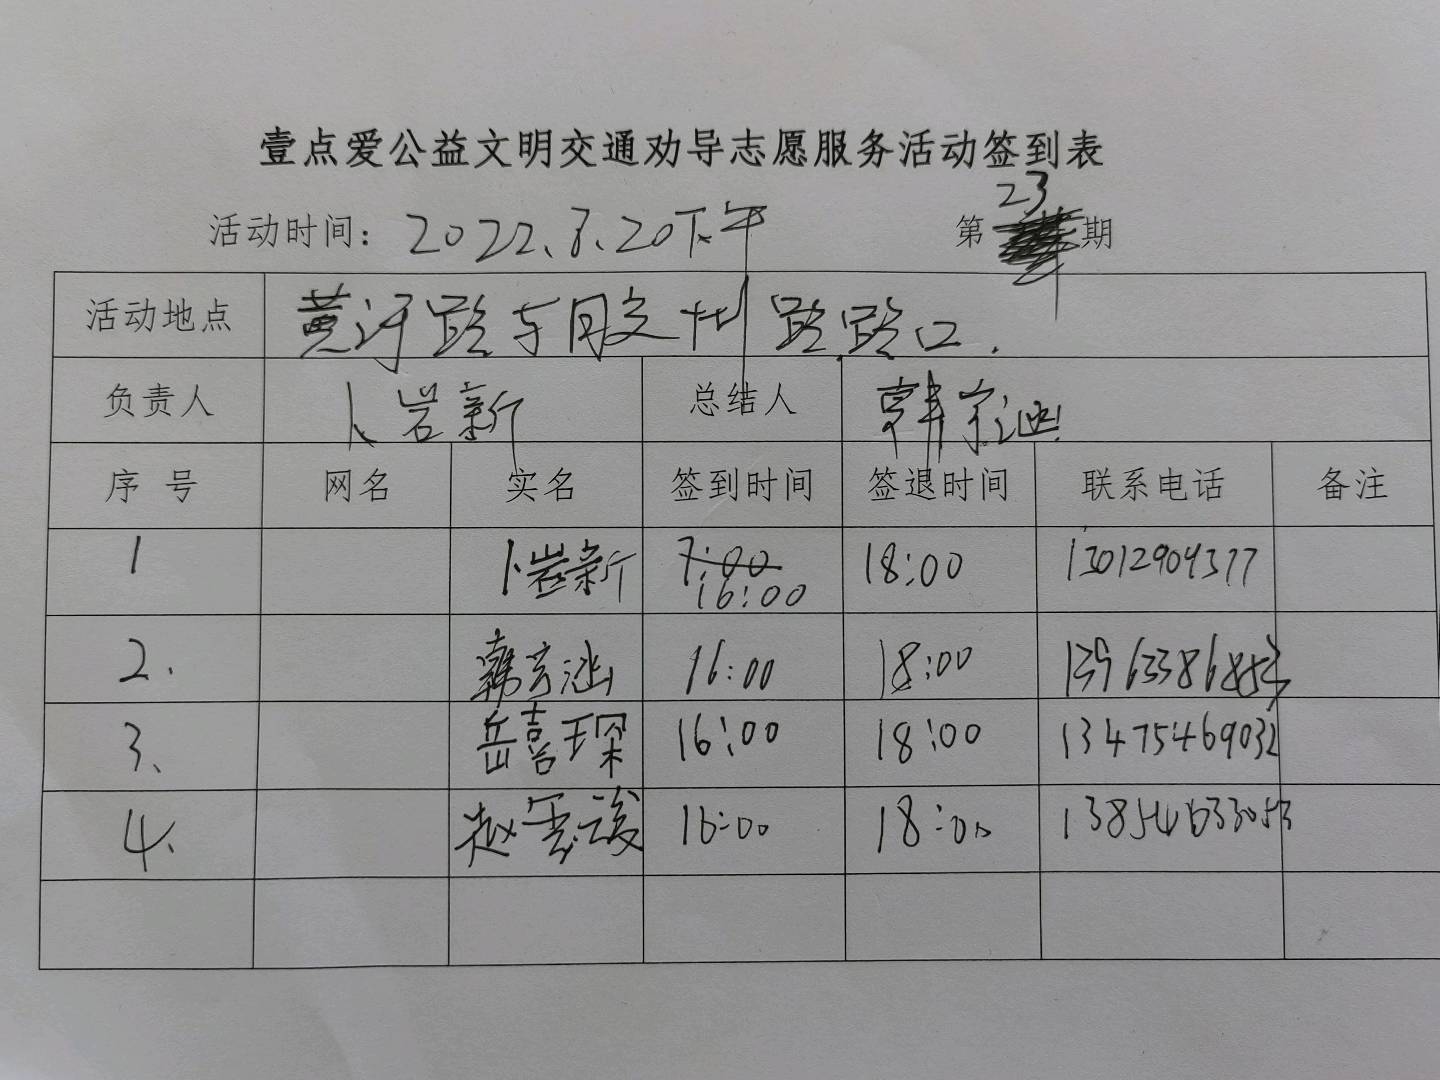 壹点爱公益文明交通劝导志愿服务活动签到表
活动时间：2022.8.20下午 第23期
活动地点 黄河路与胶州路路口.
负责人 卜岩新 总结人 韩
序号 网名 实名 签到时间 签退时间 联系电话 备注
1 卜岩新 7:00 16:00 18:00 13012904377
2. 韩 涵 16:00 18:00
3. 岳喜琛 16:00 18:00 13475469032
4. 赵 16:00 18:00 13854633053